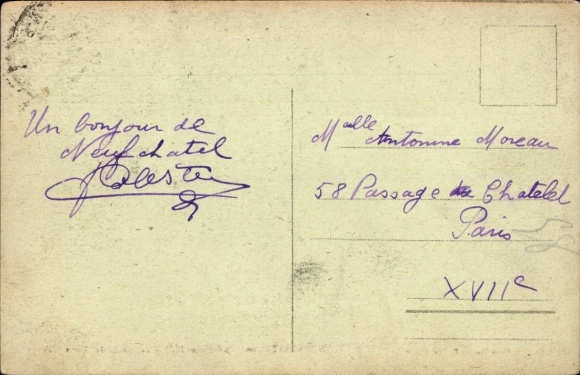 Un bonjour de
Neufchatel
Mlle Antonine Moreau
58 Passage Chatelet
Paris
XVIIe